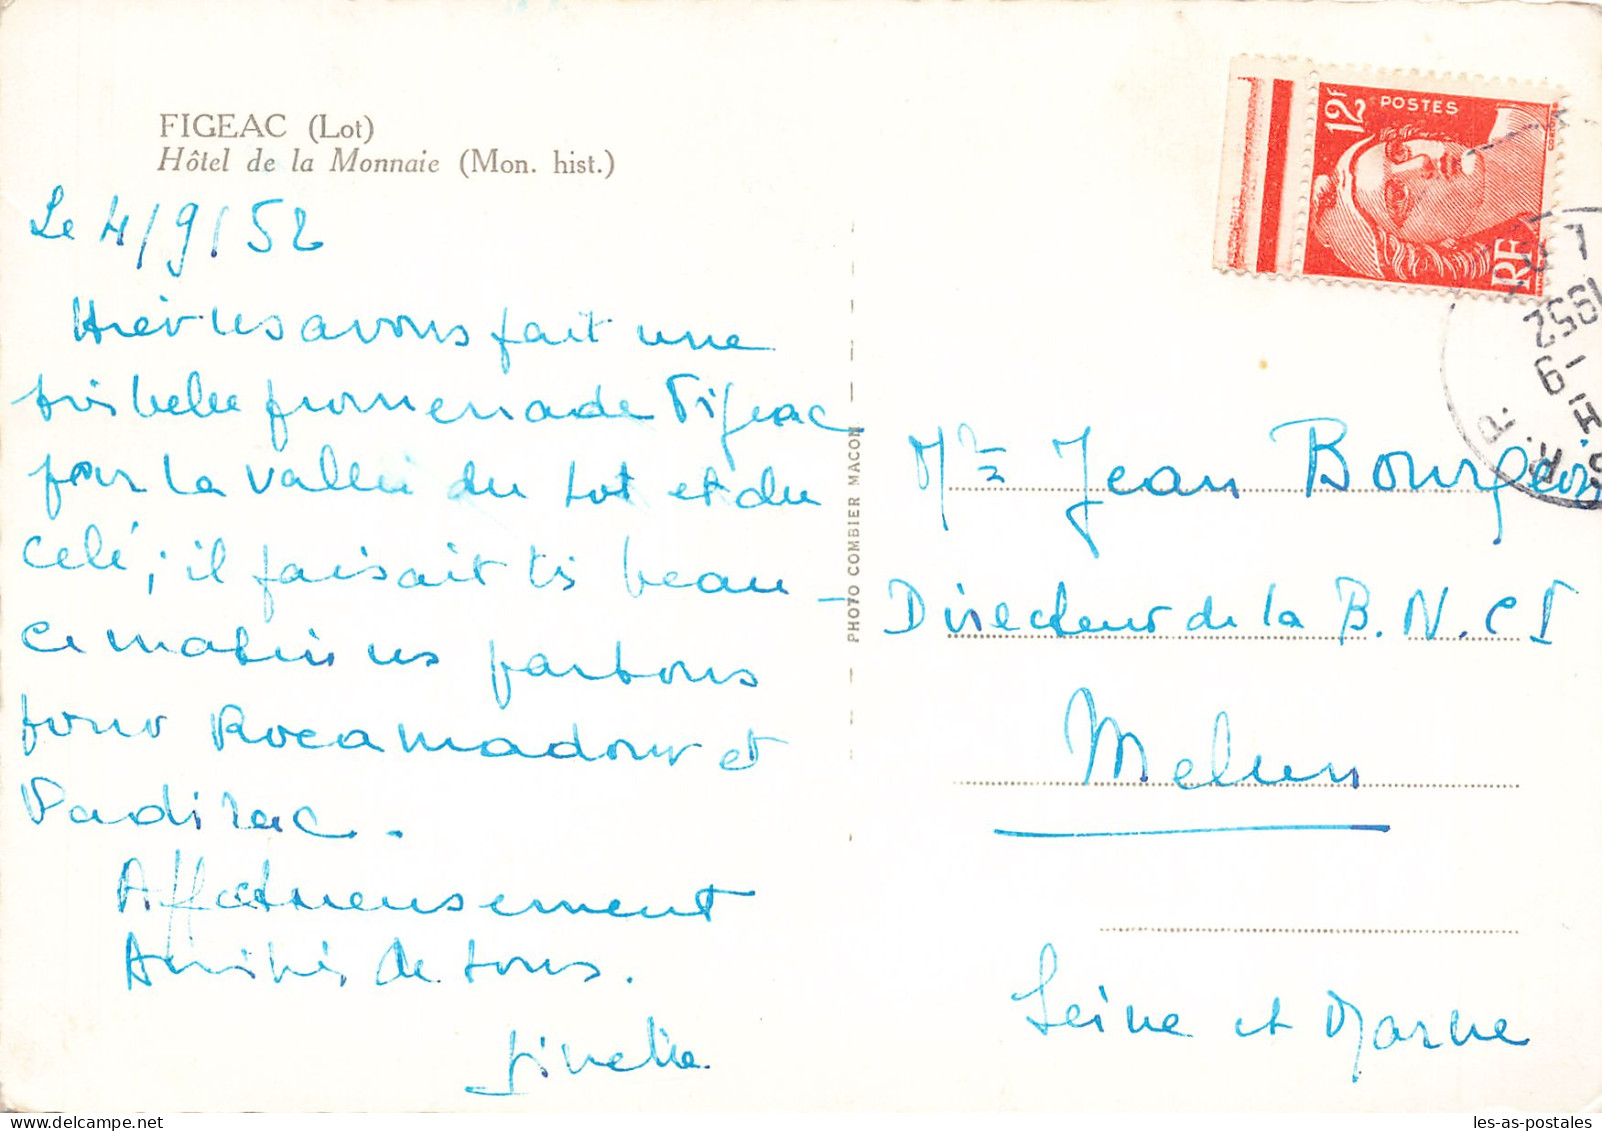 FIGEAC (Lot)
Hôtel de la Monnaie (Mon. hist.)
Le 4/9/52
Hier ns avons fait une
très belle promenade Figeac
par la vallée du Lot et du
Celé ; il faisait ts beau –
Ce matin ns partons
pour Rocamadour et
Padirac.
Affectueusement
Amitiés de tous.
Ginette
PHOTO COMBIER MACON
12F POSTES
RF
1952
Mr Jean Bourgeois
Directeur de la B.N.C.I
Melun
Seine et Marne
les-as-postales